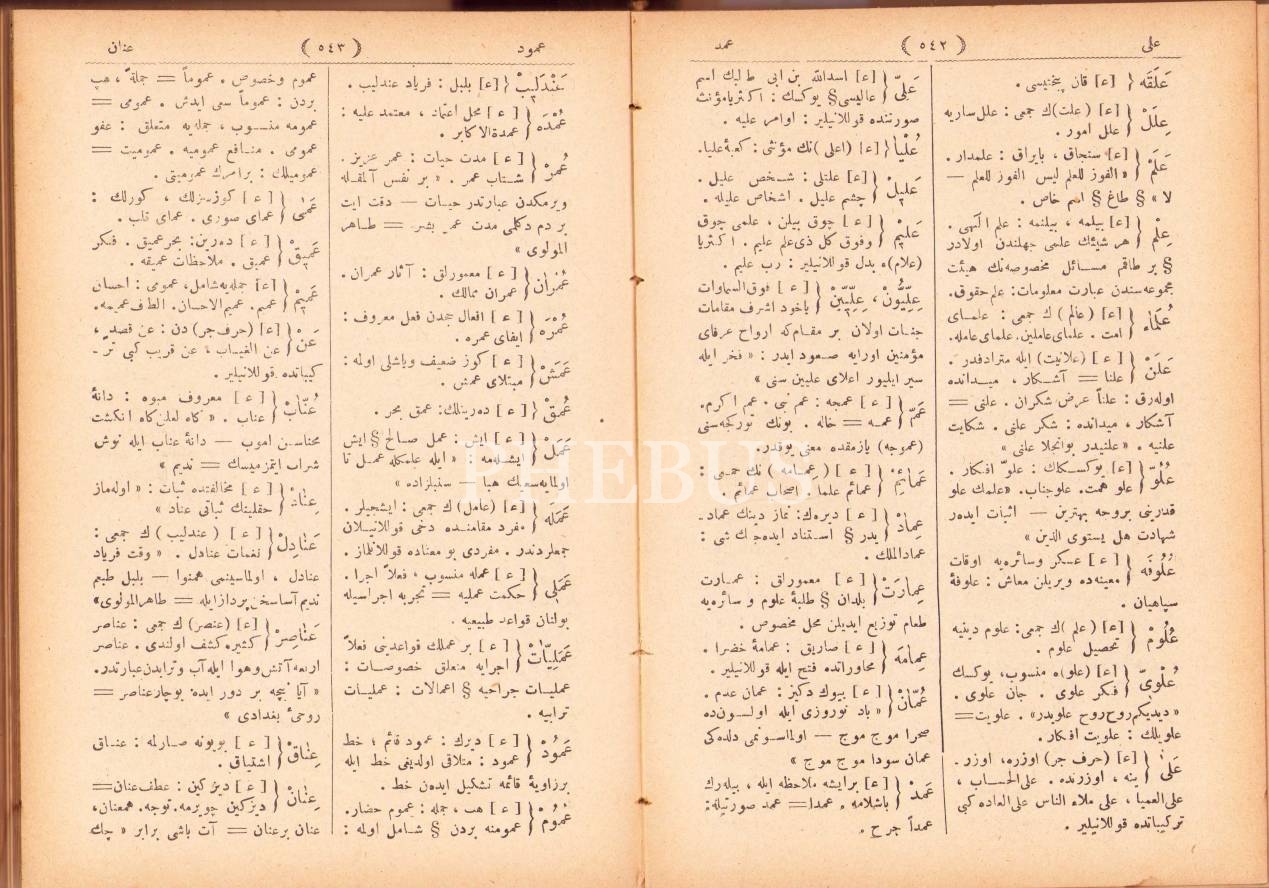 علی ﴾ ٥٤٢ ﴿ عمد
عَلَقَه [ع] قان پختیسی .
عِلَلْ [ع] (علت)ك جمعی : علل ساریه
علل امور .
عَلَمْ [ع] سنجاق ، بایراق : علمدار .
« الفوز للعلم لیس الفوز للعلم —
لا » § طاغ § اسم خاص .
عِلْم [ع] بیلمه ، بیلنمه : علم الٓهی .
هر شیئك علمی جهلندن اولادر
§ بر طاقم مسائل مخصوصه‌نك هیئت
مجموعه‌سندن عبارت معلومات : علم حقوق .
عُلَمَاء [ع] (عالم)ك جمعی : علمای
امت . علمای عاملین . علمای عامله .
عَلَنْ [ع] (علانیت) ایله مترادفدر .
علنا = آشكار ، میدانده
اوله‌رق : علناً عرض شكران . علنی =
آشكار ، میدانده : شكر علنی . شكایت
علنیه . « علنیدر بوانجلا علنی »
عُلُوّ [ع] یوكسكلك : علوّ افكار .
علو همت . علوجناب . «علمك علو
قدرینی بروجه بهترین — اثبات ایده‌ر
شهادت هل یستوی الذین »
عَلُوفَه [ع] عسكر وسائره‌یه اوقات
معینه‌ده ویریلن معاش : علوفهٔ
سپاهیان .
عُلُومْ [ع] (علم)ك جمعی : علوم دینیه
تحصیل علوم .
عُلْوِیّ [ع] (علو)ه منسوب ، یوكسك
فكر علوی . جان علوی .
«دیدیكم روح روح علویدر» . علویت =
علویلك : علویت افكار .
عَلَی [ع] (حرف جر) اوزره ، اوزر -
ینه ، اوزرنده . علی‌الحساب ،
علی‌العمیا ، علی ملاء الناس علی‌العاده كبی
تركیباتده قوللانیلیر .
عَلِیّ [ع] اسدالله بن ابی طالبك اسم
عالیسی § یوكسك : اكثریا مؤنث
صورتنده قوللانیلیر : اوامر علیه .
عُلْیَا [ع] (اعلی)نك مؤنثی : كعبهٔ علیا .
عَلِیلْ [ع] علتلی : شخص علیل .
چشم علیل . اشخاص علیله .
عَلِیم [ع] چوق بیلن ، علمی چوق
وفوق كل ذی‌علم علیم . اكثریا
(علام)ه بدل قوللانیلیر : رب علیم .
عِلِّیُّون ، عِلِّیِّینْ [ع] فوق‌السماوات
یاخود اشرف مقامات
جنات اولان بر مقام‌كه ارواح عرفای
مؤمنین اورایه صعود ایدر : « فخر ایله
سیر ایلیور اعلای علیین سنی »
عَمّ [ع] عمجه : عم نبی . عم اكرم .
عمه = خاله . بونك توركجه‌سنی
(عموجه) یازمقده معنی یوقدر .
عَمَائِمْ [ع] (عمامه)نك جمعی :
عمائم علما . اصحاب عمائم .
عِمَادْ [ع] دیرك : نماز دینك عماد -
یدر § استناد ایده‌جك شی :
عمادالملك .
عِمَارَتْ [ع] معمورلق : عمارت
بلدان § طلبهٔ علوم و سائره‌یه
طعام توزیع ایدیلن محل مخصوص .
عِمَامَه [ع] صاریق : عمامهٔ خضرا .
محاوراتده فتح ایله قوللانیلیر .
عُمَّانْ [ع] بیوك دكیز : عمان عدم .
« باد نوروزی ایله اولسون‌ده
صحرا موج موج — اولماسونمی دلده‌كی
عمان سودا موج موج »
عَمْدْ [ع] برایشه ملاحظه ایله ، بیله‌رك
باشلامه . عمدا = عمد صورتیله :
عمداً جرح .
عمود ﴾ ٥٤٣ ﴿ عنان
عَنْدَلِیبْ [ع] بلبل : فریاد عندلیب .
عُمْدَه [ع] محل اعتماد ، معتمد علیه :
عمدةالاكابر .
عُمْرْ [ع] مدت حیات : عمر عزیز .
شتاب عمر . « بر نفس آلمقله
ویرمكدن عبارتدر حیات — دقت ایت
بر دم دكلمی مدت عمر بشر = طاهر
المولوی »
عُمْرَان [ع] معمورلق : آثار عمران .
عمران ممالك .
عُمْرَه [ع] افعال حجدن فعل معروف :
ایفای عمره .
عَمَشْ [ع] كوز ضعیف ویاشلی اولمه :
مبتلای عمش .
عُمْقْ [ع] ده‌رینلك : عمق بحر .
عَمَلْ [ع] ایش : عمل صالح § ایش
ایشله‌مه : « ایله علمكله عمل تا
اولمایه سعیك هبا — سنبلزاده »
عَمَلَه [ع] (عامل)ك جمعی : ایشجیلر .
مفرد مقامنده دخی قوللانیلان
جمعلردندر . مفردی بو معناده قوللانلماز .
عَمَلِی [ع] عمله منسوب ، فعلاً اجرا .
حكمت عملیه = تجربه اجراسیله
بولنان قواعد طبیعیه .
عَمَلِیَّاتْ [ع] بر عملك قواعدینی فعلاً
اجرایه متعلق خصوصات :
عملیات جراحیه § اعمالات : عملیات
ترابیه .
عَمُودْ [ع] دیرك : عمود قائم ؛ خط
عمود : متلاقی اولدیغی خط ایله
برزاویهٔ قائمه تشكیل ایده‌ن خط .
عُمُوم [ع] هپ ، جمله : عموم حضار .
عمومنه بردن § شامل اولمه :
عموم وخصوص . عموماً = جملةً ، هپ
بردن : عموماً سعی ایدش . عمومی =
عمومه منسوب ، جمله‌یه متعلق : عفو
عمومی . منافع عمومیه . عمومیت =
عمومیلك : برامرك عمومیتی .
عَمَی [ع] كوزسزلك ، كورلك :
عمای صوری . عمای قلب .
عَمِیقْ [ع] ده‌رین : بحرعمیق . فكر
عمیق . ملاحظات عمیقه .
عَمِیم [ع] جمله‌یه شامل ، عمومی : احسان
عمیم . عمیم‌الاحسان . الطاف عمیمه .
عَنْ [ع] (حرف جر) دن : عن قصد ،
عن الغیاب ، عن قریب كبی تر -
كیباتده قوللانیلیر .
عُنَّابْ [ع] معروف میوه : دانهٔ
عناب . « كاه لعلن كاه انكشت
محناسن اموب — دانهٔ عناب ایله نوش
شراب ایتمزمیسك = ندیم »
عِنَادْ [ع] مخالفتده ثبات : « اوله‌ماز
حقلینك ثباتی عناد »
عَنَادِلْ [ع] (عندلیب)ك جمعی :
نغمات عنادل . « وقت فریاد
عنادل ، اولماسینمی همنوا — بلبل طبعم
ندیم آسا سخن پردازایله = طاهرالمولوی»
عَنَاصِرْ [ع] (عنصر)ك جمعی : عناصر
كثیر . كشف اولندی . عناصر
اربعه آتش وهوا ایله آب وترابدن عبارتدر .
« آیا نیجه بر دور ایده بوچارعناصر =
روحیٔ بغدادی »
عِنَاقْ [ع] بویونه صارلمه : عناق
اشتیاق .
عِنَانْ [ع] دیزكین : عطف عنان =
دیزكین چویرمه . توجه . همعنان ،
عنان برعنان = آت باشی برابر « چك
PHEBUS